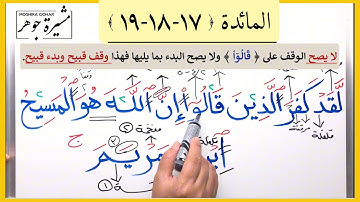 مشيرة جوهر
MOSHIRA GOHAR
المائدة ﴿ ١٧-١٨-١٩ ﴾
لا يصح الوقف على ﴿ قَالُوٓا۟ ﴾ ولا يصح البدء بما يليها فهذا وقف قبيح وبدء قبيح.
لَّقَدْ كَفَرَ الَّذِينَ قَالُوٓا۟ إِنَّ اللَّهَ هُوَ الْمَسِيحُ
ابْنُ مَرْيَمَ ج